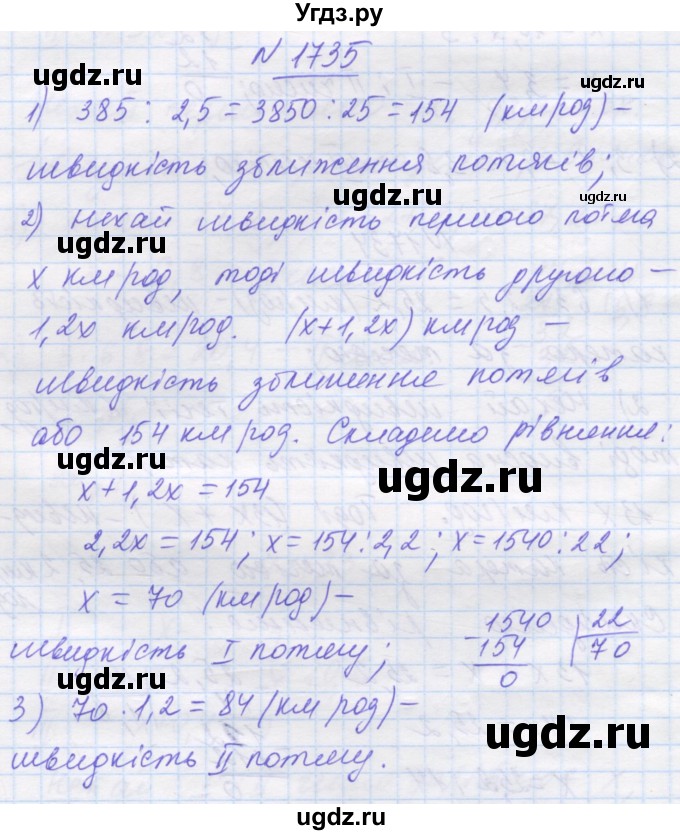 Угдз.ру
N 1735
1) 385 : 2,5 = 3850 : 25 = 154 (км/год) –
швидкість зближення потягів;
2) Нехай швидкість першого потяга
x км/год, тоді швидкість другого –
1,2x км/год. (x+1,2x) км/год –
швидкість зближення потягів
або 154 км/год. Складемо рівняння:
x + 1,2x = 154
2,2x = 154; x = 154 : 2,2; x = 1540 : 22;
x = 70 (км/год) –
швидкість I потягу;
1540 22
- 154 70
0
3) 70 · 1,2 = 84 (км/год) –
швидкість II потягу.
ugdz.ru
ugdz.ru
ugdz.ru
ugdz.ru
ugdz.ru
ugdz.ru
ugdz.ru
ugdz.ru
ugdz.ru
ugdz.ru
ugdz.ru